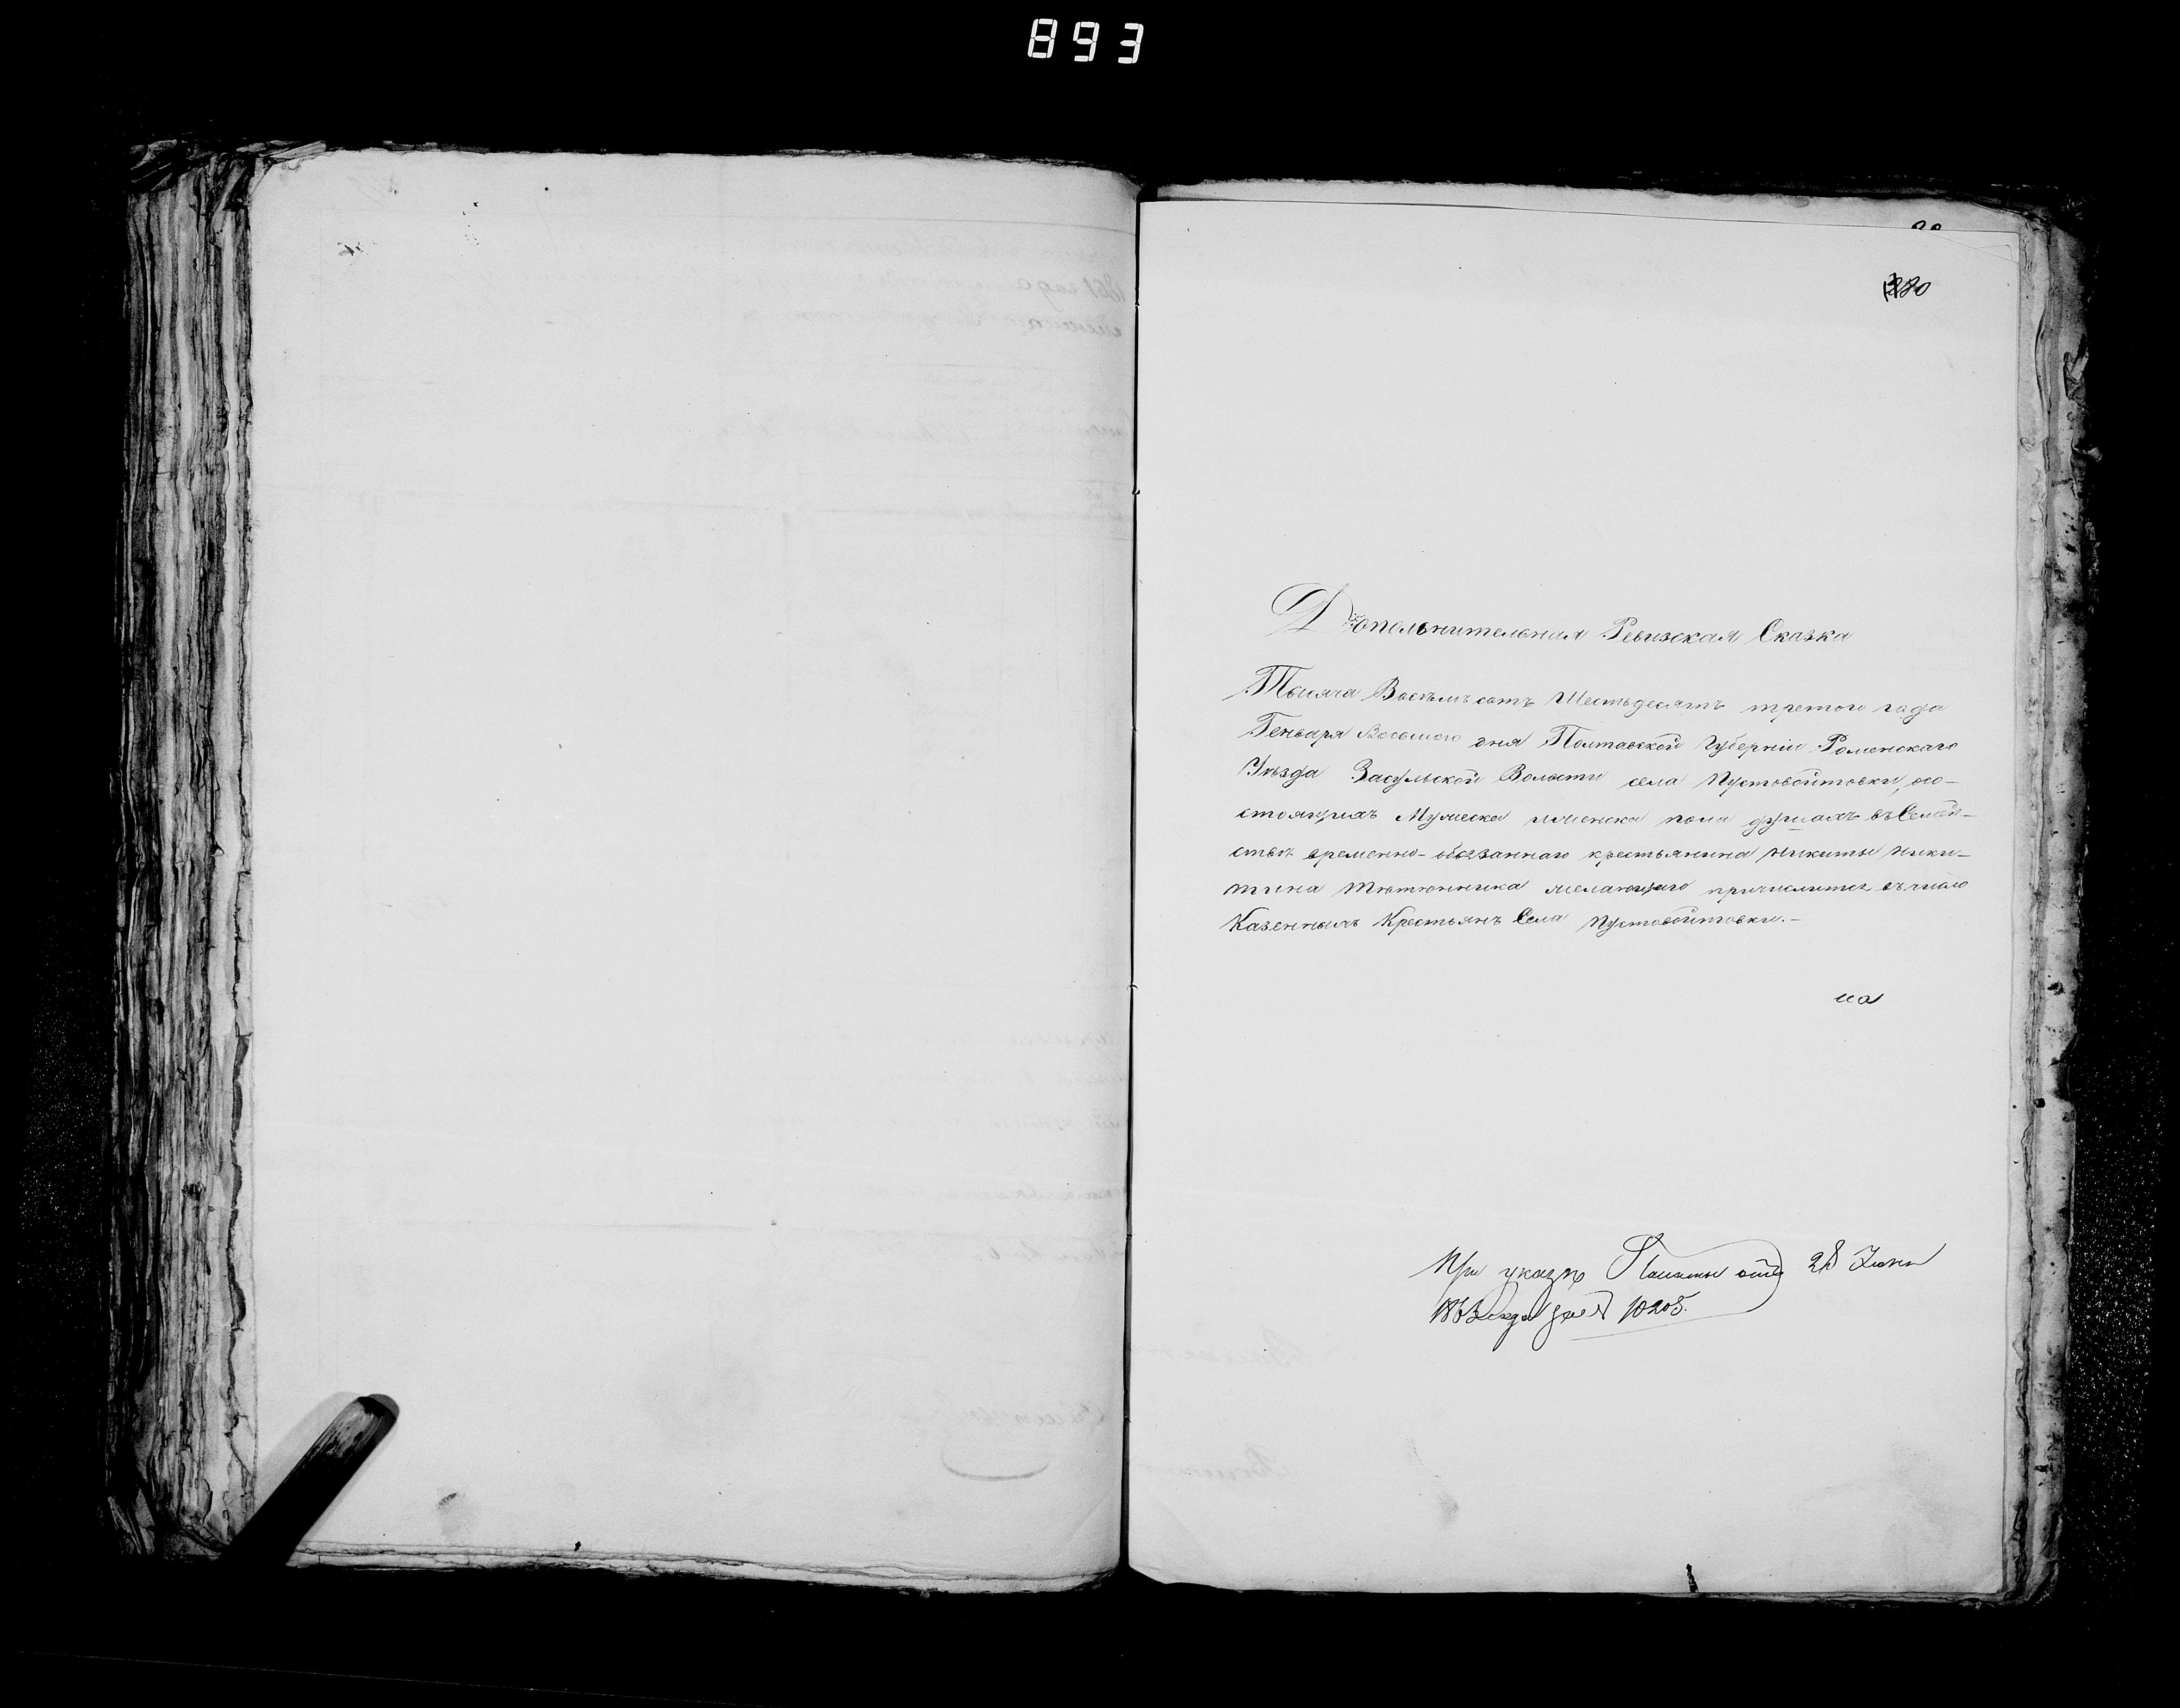 893
Дополнительная Ревизская Сказка
Тысяча Восемьсотъ Шестьдесятъ третого года
Генваря Восьмого дня Полтавской Губерніи Роменскаго
Уѣзда Засульской Волости села Пустовойтовки, осо-
стоящихъ Мужеска иженска пола душахъ въ Семей-
ствѣ временно-обязаннаго крестьянина Никиты Ники-
тина Тютюнника желающаго причислится въ число
Казенныхъ Крестьянъ Села Пустовойтовки.-
При указѣ Палаты отъ 28 Іюня
1863 года за № 10205.